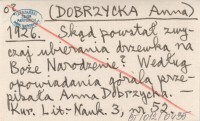 (DOBRZYCKA Anna)
1926. Skąd powstał zwy-
czaj ubierania drzewka na
Boże Narodzenie? Według
opowiadania górala prze-
pisała Anna Dobrzycka. —
Kur. Lit.-Nauk. 3, nr 52